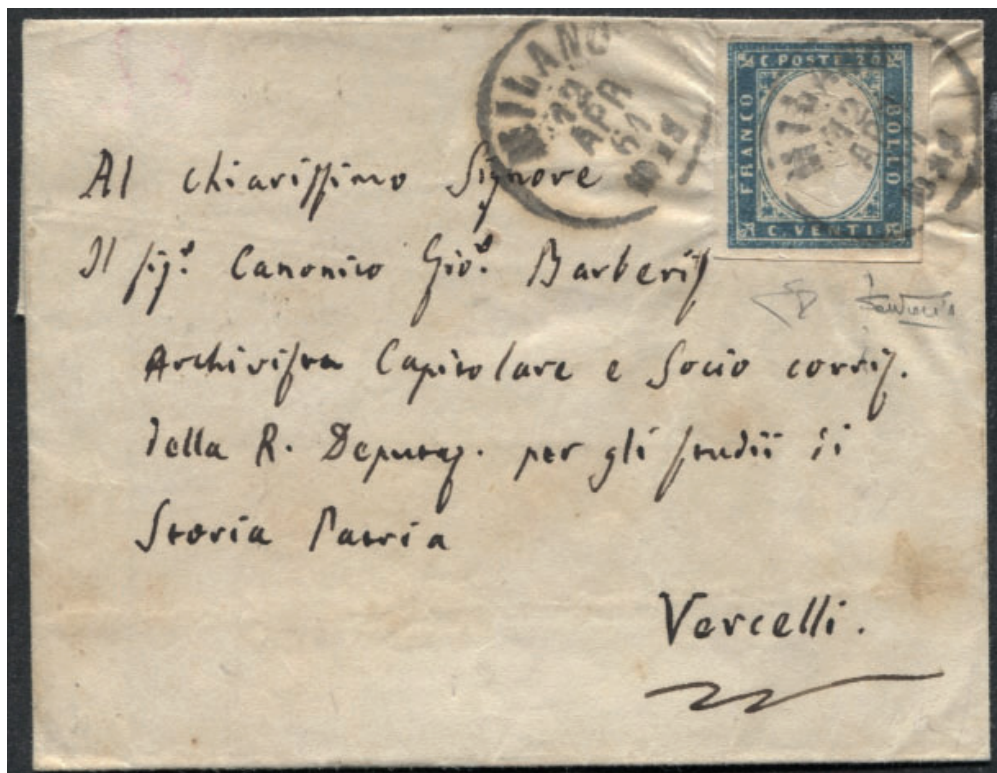 MILANO
12
APR
61
C. POSTE 20
FRANCO
BOLLO
C. VENTI
MILANO
12
Al chiarissimo Signore
Il sigr. Canonico Giov. Barberis
Archivista Capitolare e Socio corris.
della R. Deputaz. per gli studii di
Storia Patria
Vercelli.